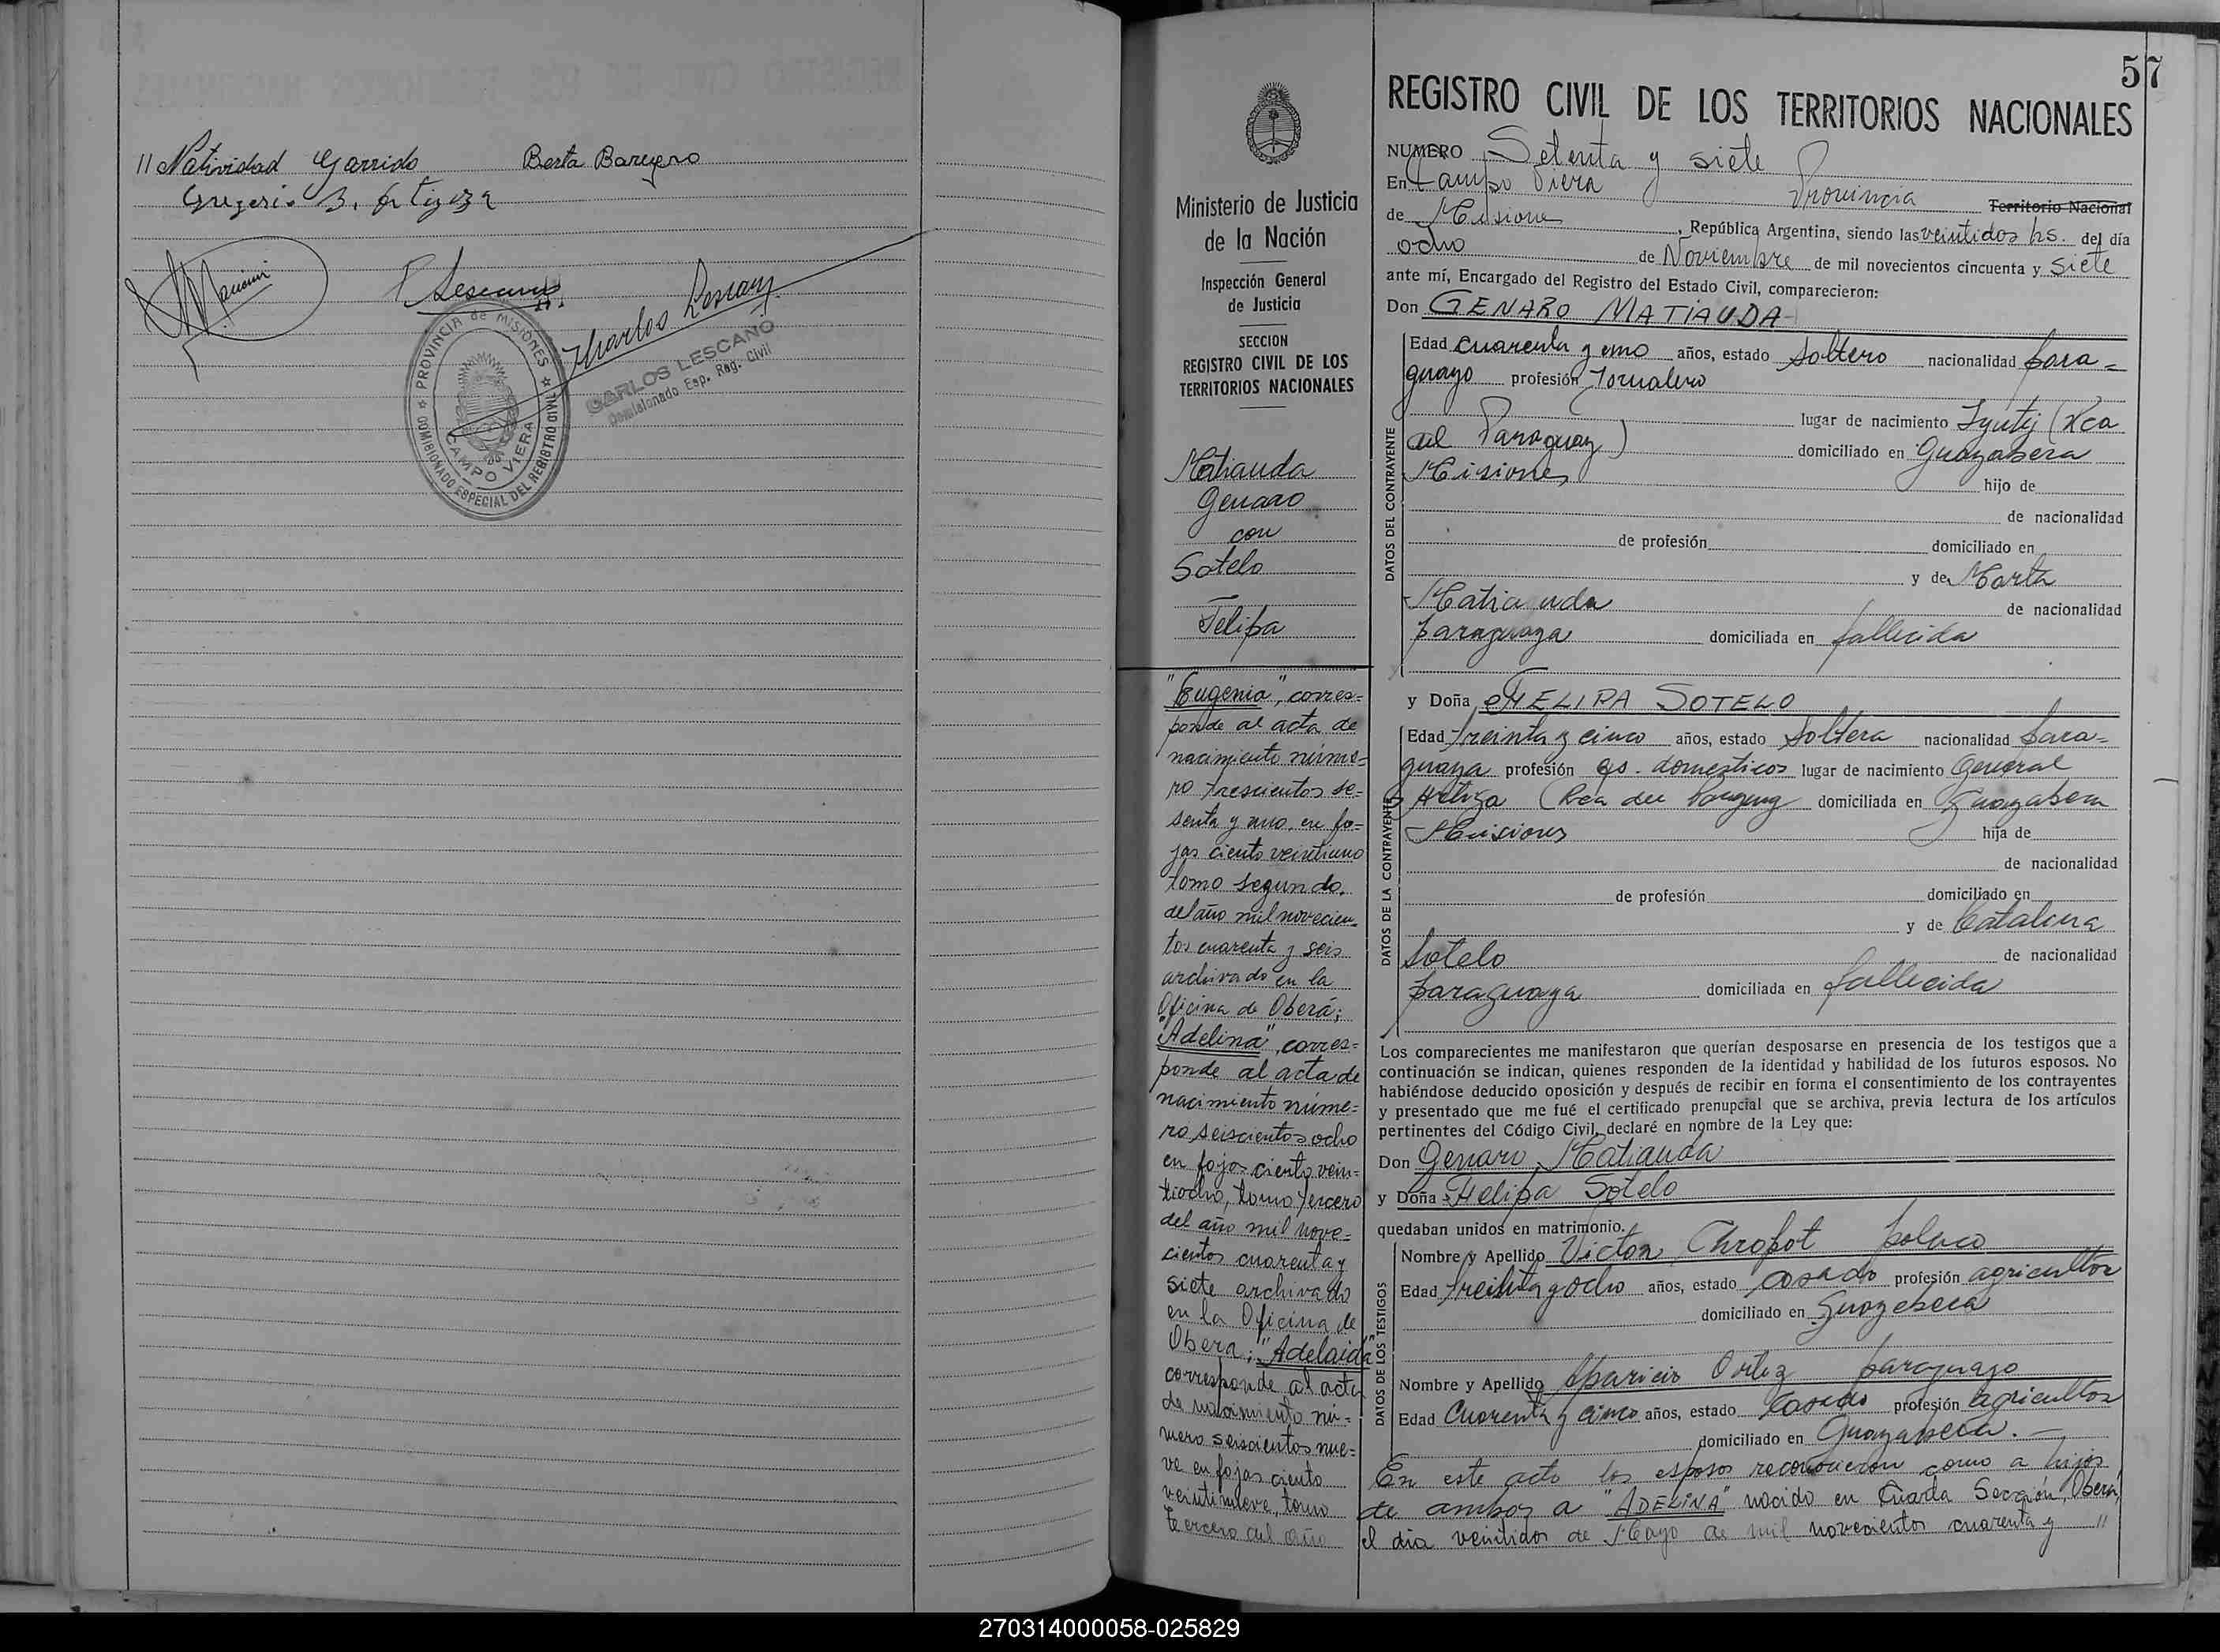 11 Natividad Garrido Berta Bareyro
Gregorio B.
Carlos Lescano
CARLOS LESCANO
Comisionado Esp. Reg. Civil
PROVINCIA de MISIONES
COMISIONADO ESPECIAL DEL REGISTRO CIVIL
CAMPO VIERA
57
Ministerio de Justicia
de la Nación
Inspección General
de Justicia
SECCION
REGISTRO CIVIL DE LOS
TERRITORIOS NACIONALES
Matiauda
Genaro
con
Sotelo
Felipa
"Eugenia", corres=
ponde al acta de
nacimiento núme=
ro trescientos se=
senta y uno, en fo=
jas ciento veintiuno
tomo segundo,
del año mil novecien=
tos cuarenta y seis
archivado en la
Oficina de Oberá;
"Adelina", corres=
ponde al acta de
nacimiento núme=
ro seiscientos ocho
en fojas ciento vein=
tiocho, tomo tercero
del año mil nove=
cientos cuarenta y
siete archivado
en la Oficina de
Obera; "Adelaida"
corresponde al acta
de nacimiento nú=
mero seiscientos nue=
ve en fojas ciento
veintinueve, tomo
tercero del año
REGISTRO CIVIL DE LOS TERRITORIOS NACIONALES
NUMERO Setenta y siete
En Campo Viera Provincia Territorio Nacional
de Misiones, República Argentina, siendo las veintidos hs. del día
ocho de Noviembre de mil novecientos cincuenta y siete
ante mí, Encargado del Registro del Estado Civil, comparecieron:
Don GENARO MATIAUDA
DATOS DEL CONTRAYENTE
Edad cuarenta y uno años, estado soltero nacionalidad para=
guayo profesión Jornalero
lugar de nacimiento Iyutý (Rca
del Paraguay) domiciliado en Guayabera
Misiones hijo de
de nacionalidad
de profesión domiciliado en
y de Marta
Matiauda de nacionalidad
paraguaya domiciliada en fallecida
y Doña FELIPA SOTELO
DATOS DE LA CONTRAYENTE
Edad treinta y cinco años, estado soltera nacionalidad para=
guaya profesión qs. domesticos lugar de nacimiento General
Artiga (Rca del Paraguay domiciliada en Guayabera
Misiones hija de
de nacionalidad
de profesión domiciliado en
y de Catalina
Sotelo de nacionalidad
paraguaya domiciliada en fallecida
Los comparecientes me manifestaron que querían desposarse en presencia de los testigos que a
continuación se indican, quienes responden de la identidad y habilidad de los futuros esposos. No
habiéndose deducido oposición y después de recibir en forma el consentimiento de los contrayentes
y presentado que me fué el certificado prenupcial que se archiva, previa lectura de los artículos
pertinentes del Código Civil, declaré en nombre de la Ley que:
Don Genaro Matiauda
y Doña Felipa Sotelo
quedaban unidos en matrimonio.
DATOS DE LOS TESTIGOS
Nombre y Apellido Victor Chropot polaco
Edad treinta y ocho años, estado casado profesión agricultor
domiciliado en Guayabera
Nombre y Apellido Aparicio Ortiz paraguayo
Edad Cuarenta y cinco años, estado Casado profesión agricultor
domiciliado en Guayabera.
En este acto los esposos reconocieron como a hijos
de ambos a "ADELINA" nacido en Cuarta Sección, Oberá,
el día veintidos de Mayo de mil novecientos cuarenta y 11
270314000058-025829